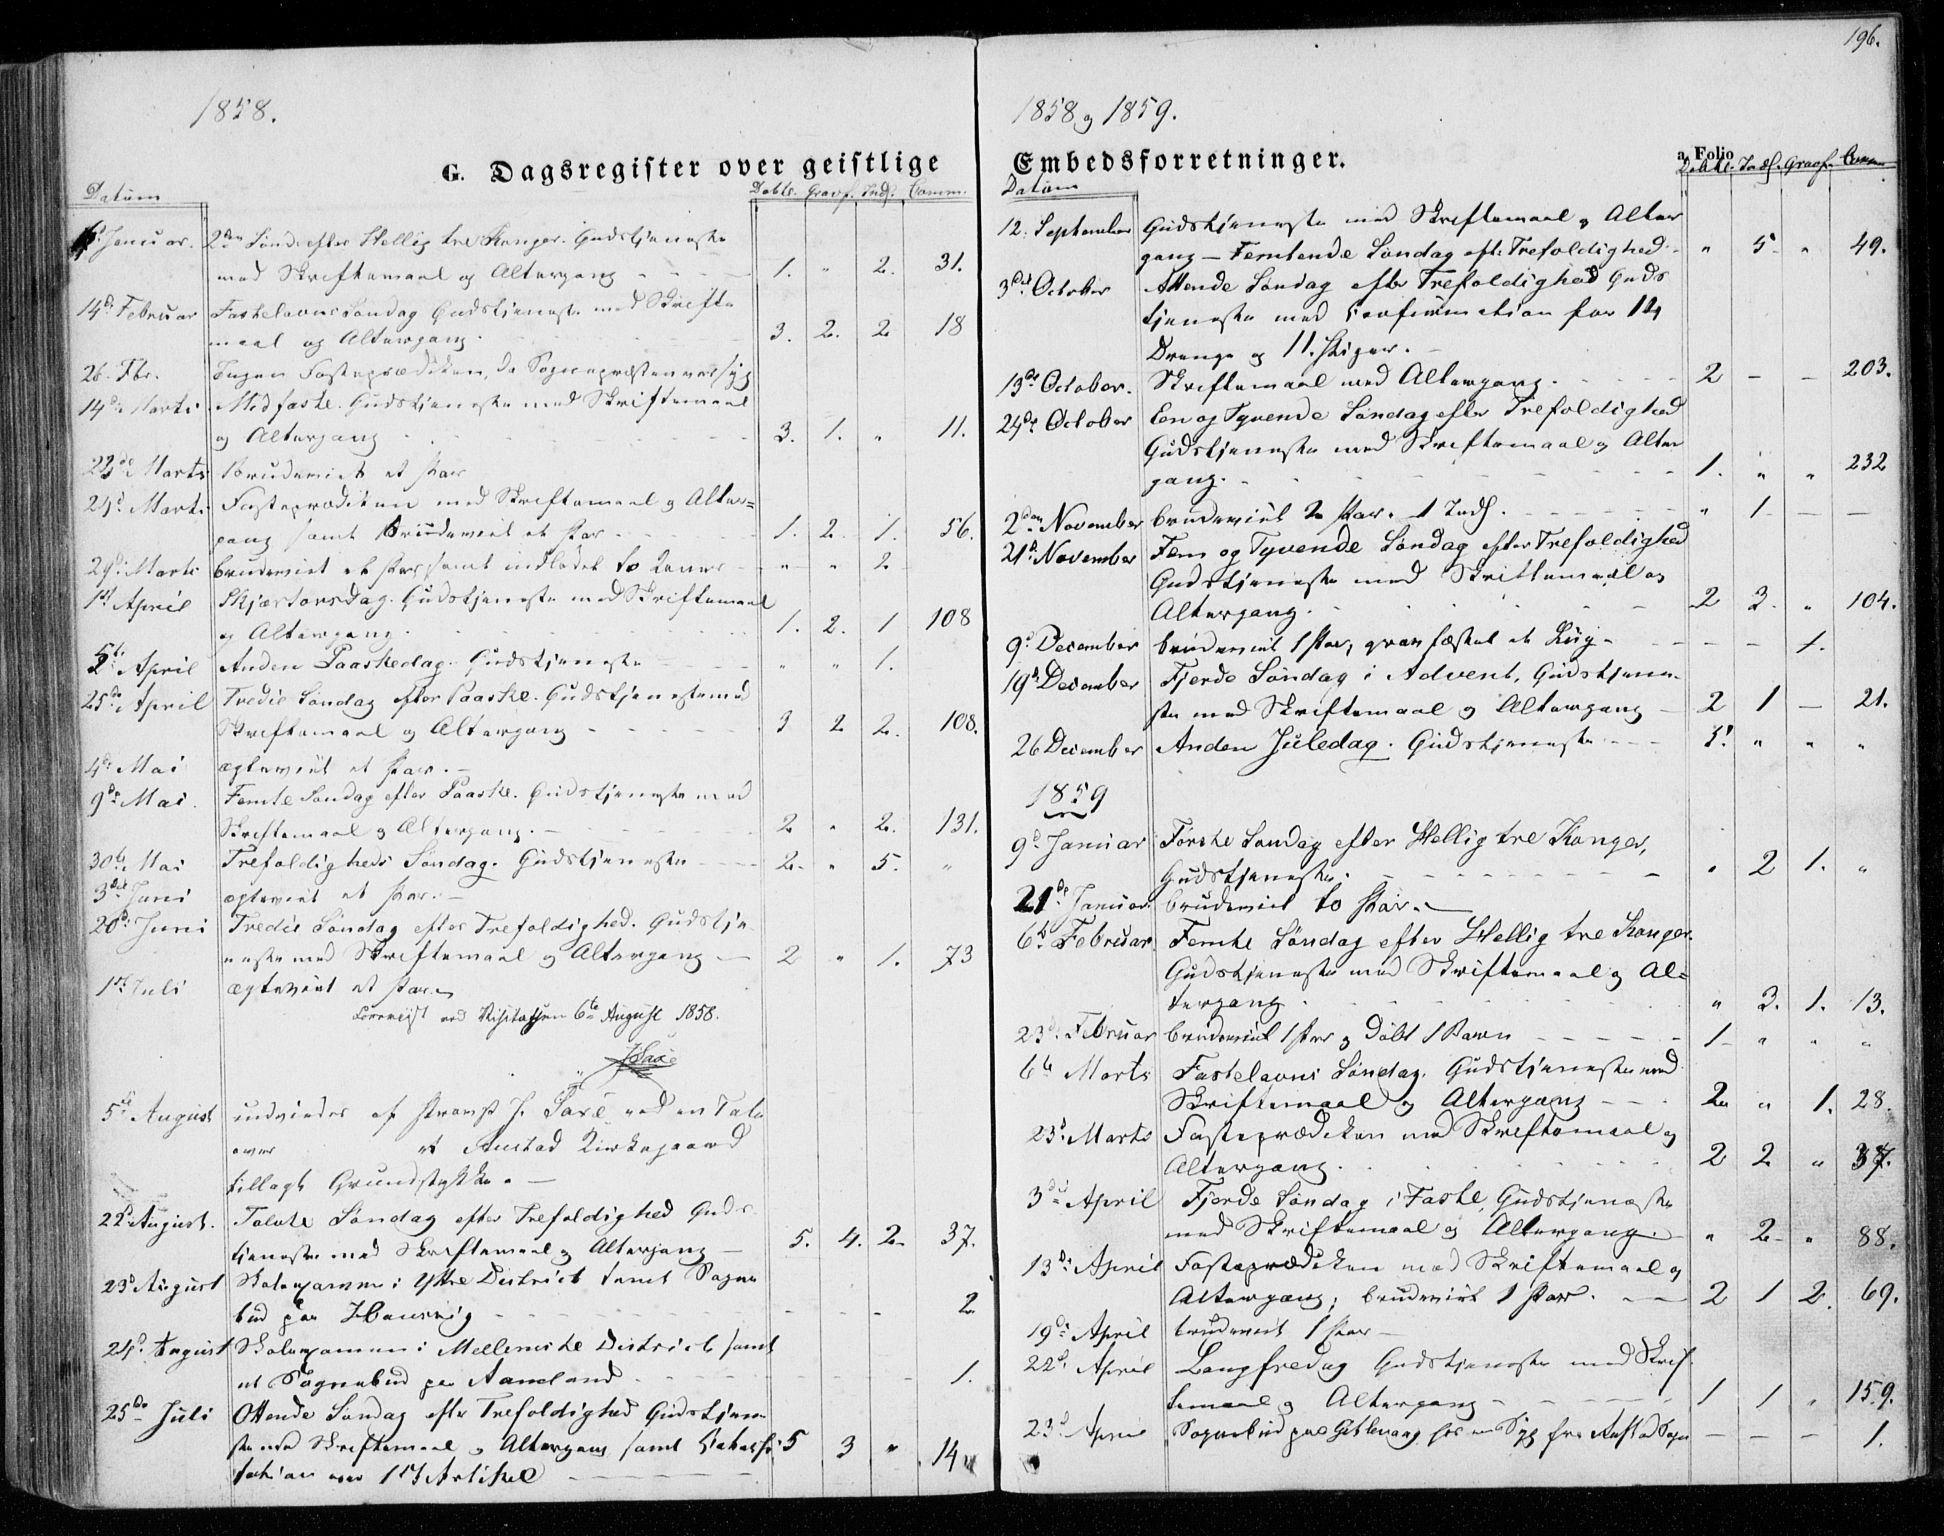 1858.
G. Dagsregister over geistlige
Datum Døbte. Gravf. Indl. Comm.
Januar. 2den Sønd. efter Hellig tre Konger. Gudstjeneste
med Skriftemaal og Altergang 1. " 2. 31.
14de Februar Fastelavns Søndag Gudstjeneste med Skrifte
maal og Altergang. 3. 2. 2 18
26. Fbr. Ingen Fasteprædiken, da Sognepræsten var syg
14de Marts Midfaste. Gudstjeneste med Skriftemaal
og Altergang 3. 1. " 11.
23de Marts Brudeviet et Par
24de Marts Fasteprædiken med Skriftemaal og Alter=
gang samt Brudeviet et Par 1. 2. 1. 56.
29de Marts brudeviet et Par samt indledet to Koner " " 2
1ste April Skjærtorsdag. Gudstjeneste med Skriftemaal
og Altergang. 1. 2. 1 108
5te April Anden Paaskedag. Gudstjeneste " " 1.
25de April Tredie Søndag efter Paaske. Gudstjeneste med
Skriftemaal og Altergang 3 2 2. 108.
4de Mai ægteviet et Par.
9de Mai. Femte Søndag efter Paaske. Gudstjeneste med
Skriftemaal og Altergang. 2 " 2. 131.
30te Mai Trefoldigheds Søndag. Gudstjeneste 2 " 5. "
3die Juni ægteviet et Par.
20de Juni Tredie Søndag efter Trefoldighed. Gudstje
neste med Skriftemaal og Altergang 2 " 1. 73
1ste Juli ægteviet et Par
ved Visitatsen 6te August 1858.
J Saxe
5te August indviedes af Provst J. Saxe ved en Tale
over et Austad Kirkegaard
tillagt Grundstykke.
22de August. Tolvte Søndag efter Trefoldighed Guds
tjeneste med Skriftemaal og Altergang 5. 4. 2 37.
23de August Skolexamen i Yttre District samt Sogne
bud paa 2
24de August Skolexamen i Mellemste District samt
et Sognebud paa Aamland 1.
25de Juli Ottende Søndag efter Trefoldighed Gudstjene
ste med Skriftemaal og Altergang samt 5 3 " 14
over 1ste Artikel
196.
1858 og 1859.
Embedsforretninger.
a. Folio
Datum Døbte. Indl. Gravf. Comm
12. September Gudstjeneste med Skriftemaal og Alter
gang - Femtende Søndag eft. Trefoldighed " 5 " 49.
3die October Attende Søndag efter Trefoldighed Guds
tjeneste med Confirmation for 14
Drenge og 11. Piger.
13de October. Skriftemaal med Altergang. 2 - - 203.
24de October Een og Tyvende Søndag efter Trefoldighed
Gudstjeneste med Skriftemaal og Alter
gang. 1. " " 232
2den November brudeviet 2 Par. 1 Indl. " 1 - -
21de November Fem og Tyvende Søndag efter Trefoldighed
Gudstjeneste med Skriftemaal og
Altergang. 2 3. " 104.
9de December brudeviet 1 Par, gravfæstet et Liig 1.
19de December Fjerde Søndag i Advent, Gudstjene-
ste med Skriftemaal og Altergang 2 1 - 21.
26 December Anden Juledag. Gudstjeneste 5. " " "
1859
9de Januar Første Søndag efter Hellig tre Konger,
Gudstjeneste. " 2 1. "
21de Januar. brudeviet to Par.
6te Februar Femte Søndag efter Hellig tre Konger.
Gudstjeneste med Skriftemaal og Al=
tergang. " 3. 1. 13.
23de Februar brudeviet 1 Par og døbt 1 Barn 1 " " "
6te Marts Fastelavns Søndag. Gudstjeneste med
Skriftemaal og Altergang 2 " 1. 28.
23de Marts Fasteprædiken med Skriftemaal og
Altergang. 2 2 " 37.
3die April Fjerde Søndag i Faste, Gudstjeneste
med Skriftemaal og Altergang. " 2 " 88.
13de April Fasteprædiken med Skriftemaal og
Altergang; brudeviet 1 Par. 2 1 2. 69.
19de April brudeviet 1 Par
22de April Langfredag Gudstjeneste med Skrif
temaal og Altergang 1 1 " 159.
23de April Sognebud paa hos en Syg fra Austad Sogn - - - 1.